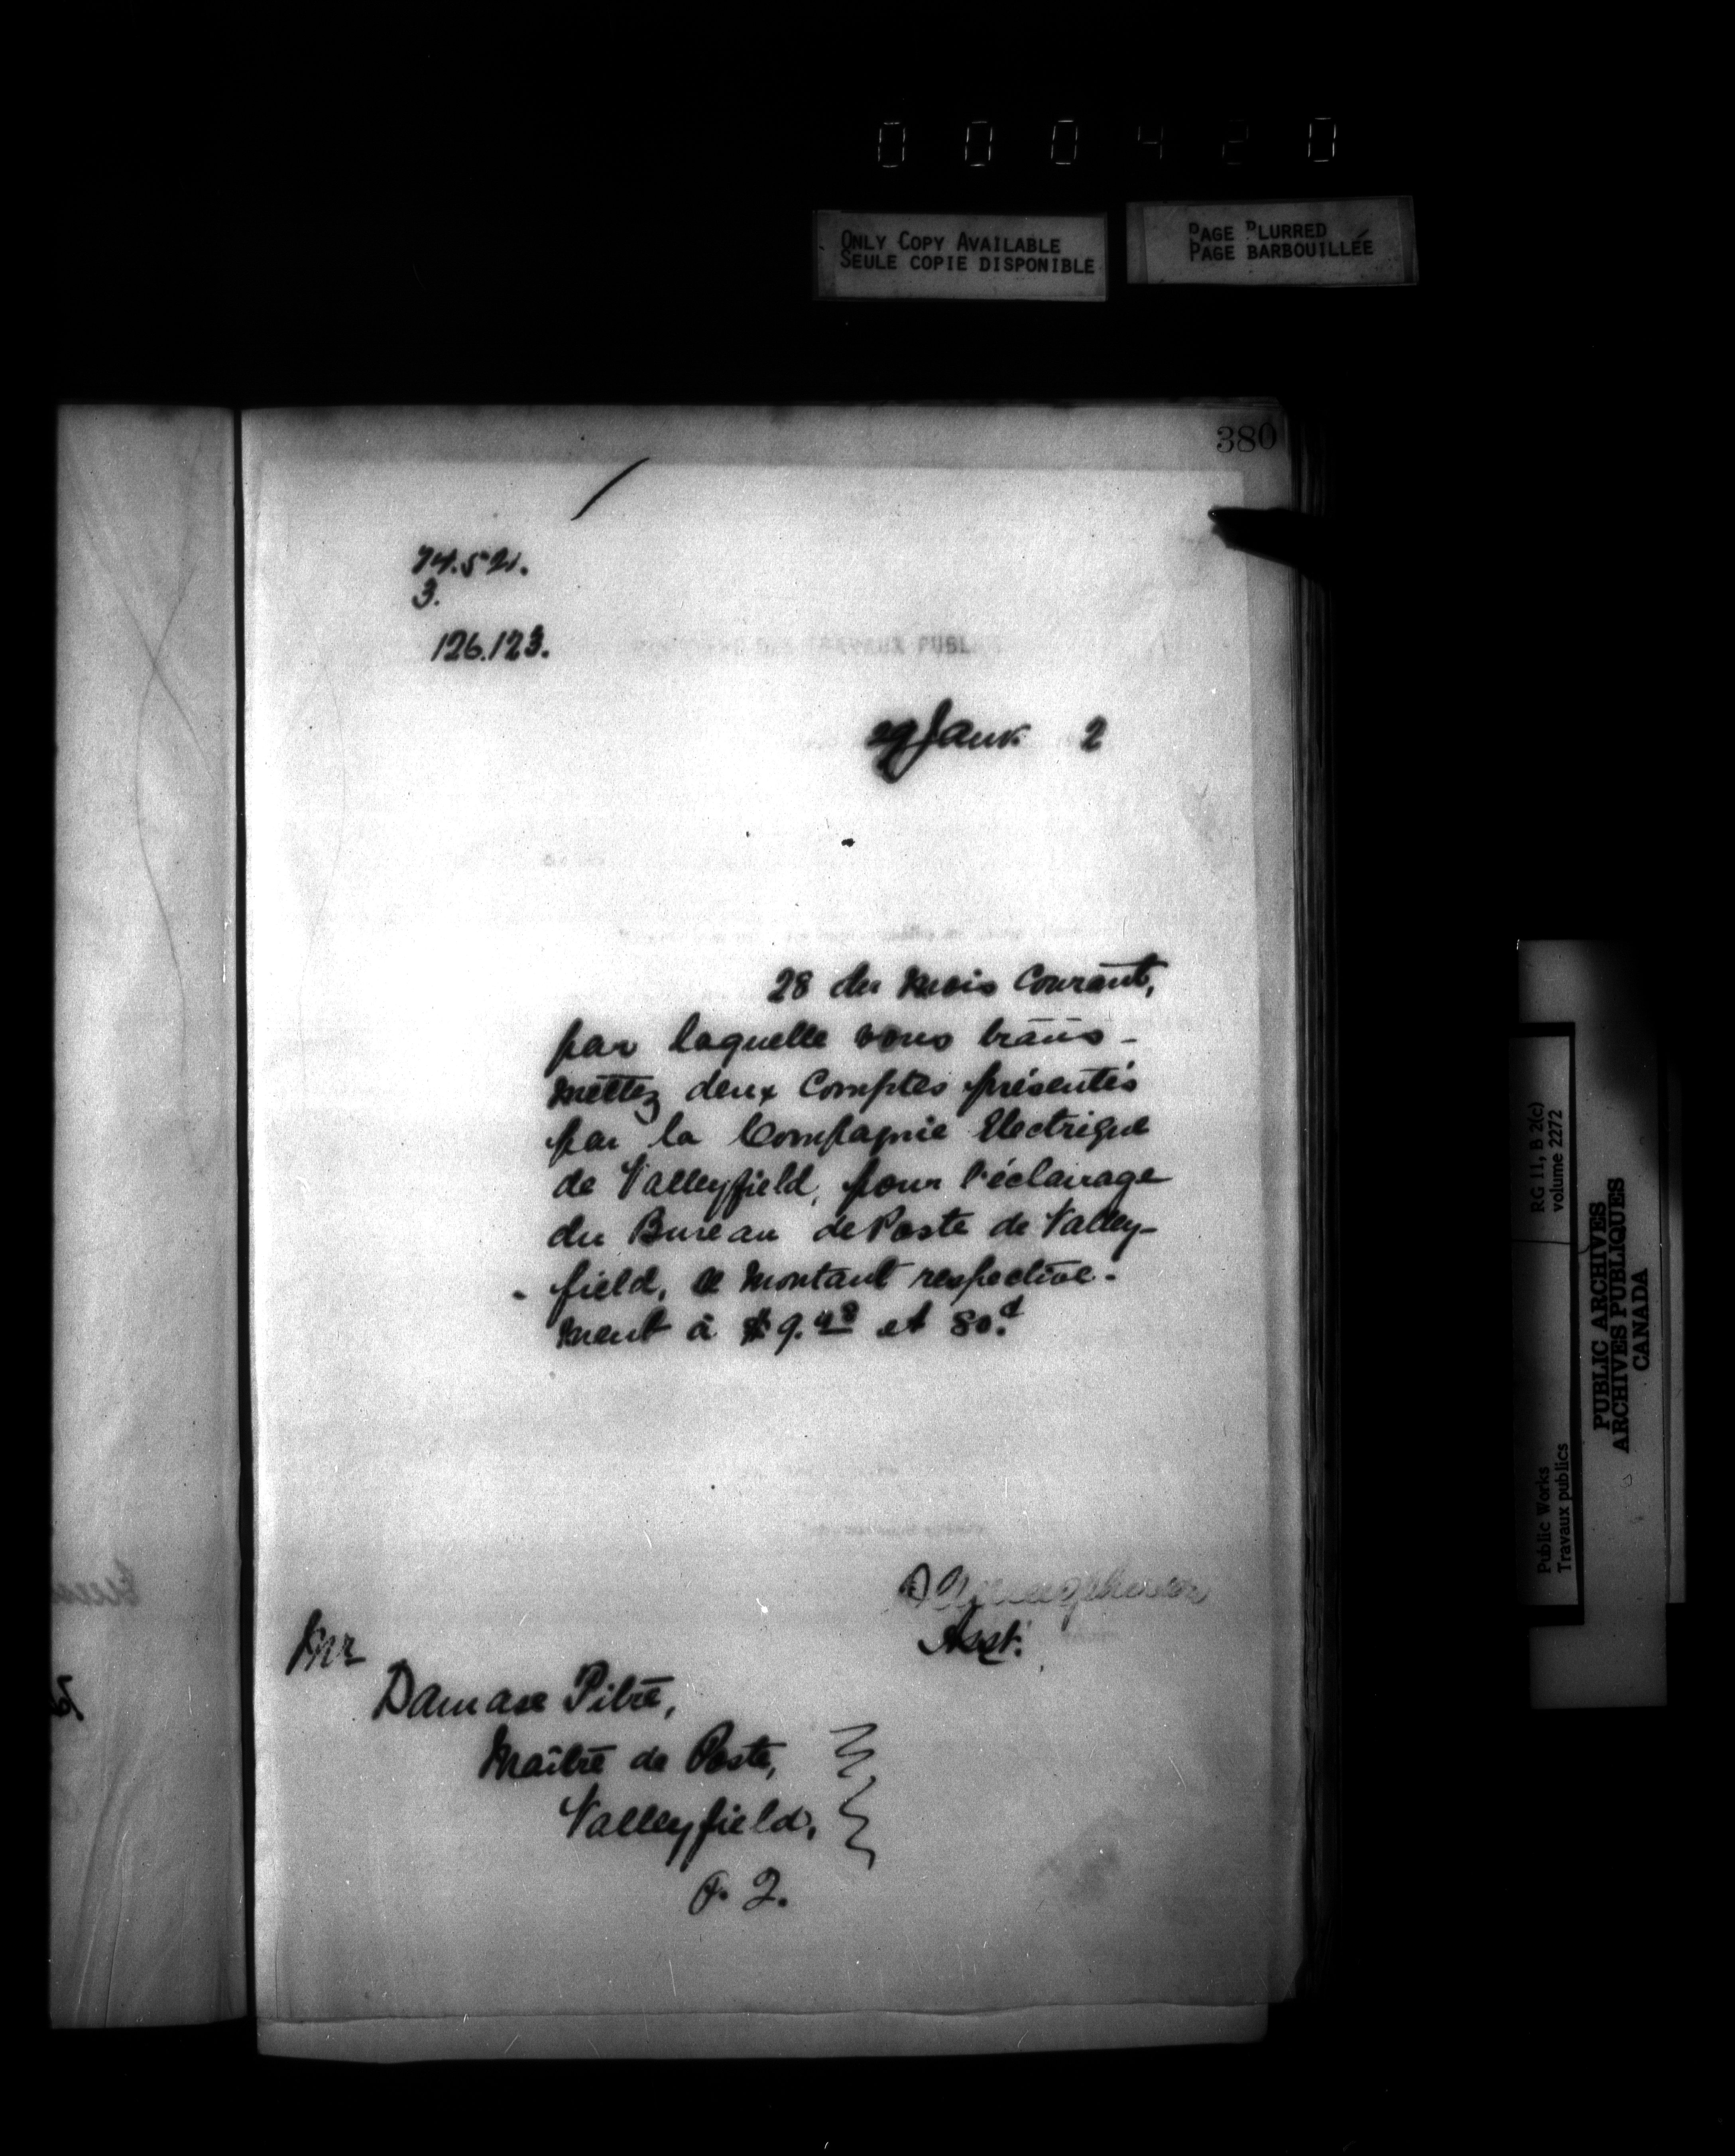 000420
ONLY COPY AVAILABLE
SEULE COPIE DISPONIBLE
PAGE BLURRED
PAGE BARBOUILLÉE
380
74.521.
3.
126.123.
TRAVAUX PUBL
29 Janv. 2
28 du mois courant,
par laquelle vous trans-
mettez deux Comptes présentés
par la Compagnie Electrique
de Valleyfield, pour l'éclairage
du Bureau de Poste de Valley-
field, montant respective-
ment à $9. et 80.
Asst.
Mr
Damase Pitre,
Maître de Poste,
Valleyfield,
P. Q.
RG 11, B 2(c)
volume 2272
Public Works
Travaux publics
PUBLIC ARCHIVES
ARCHIVES PUBLIQUES
CANADA